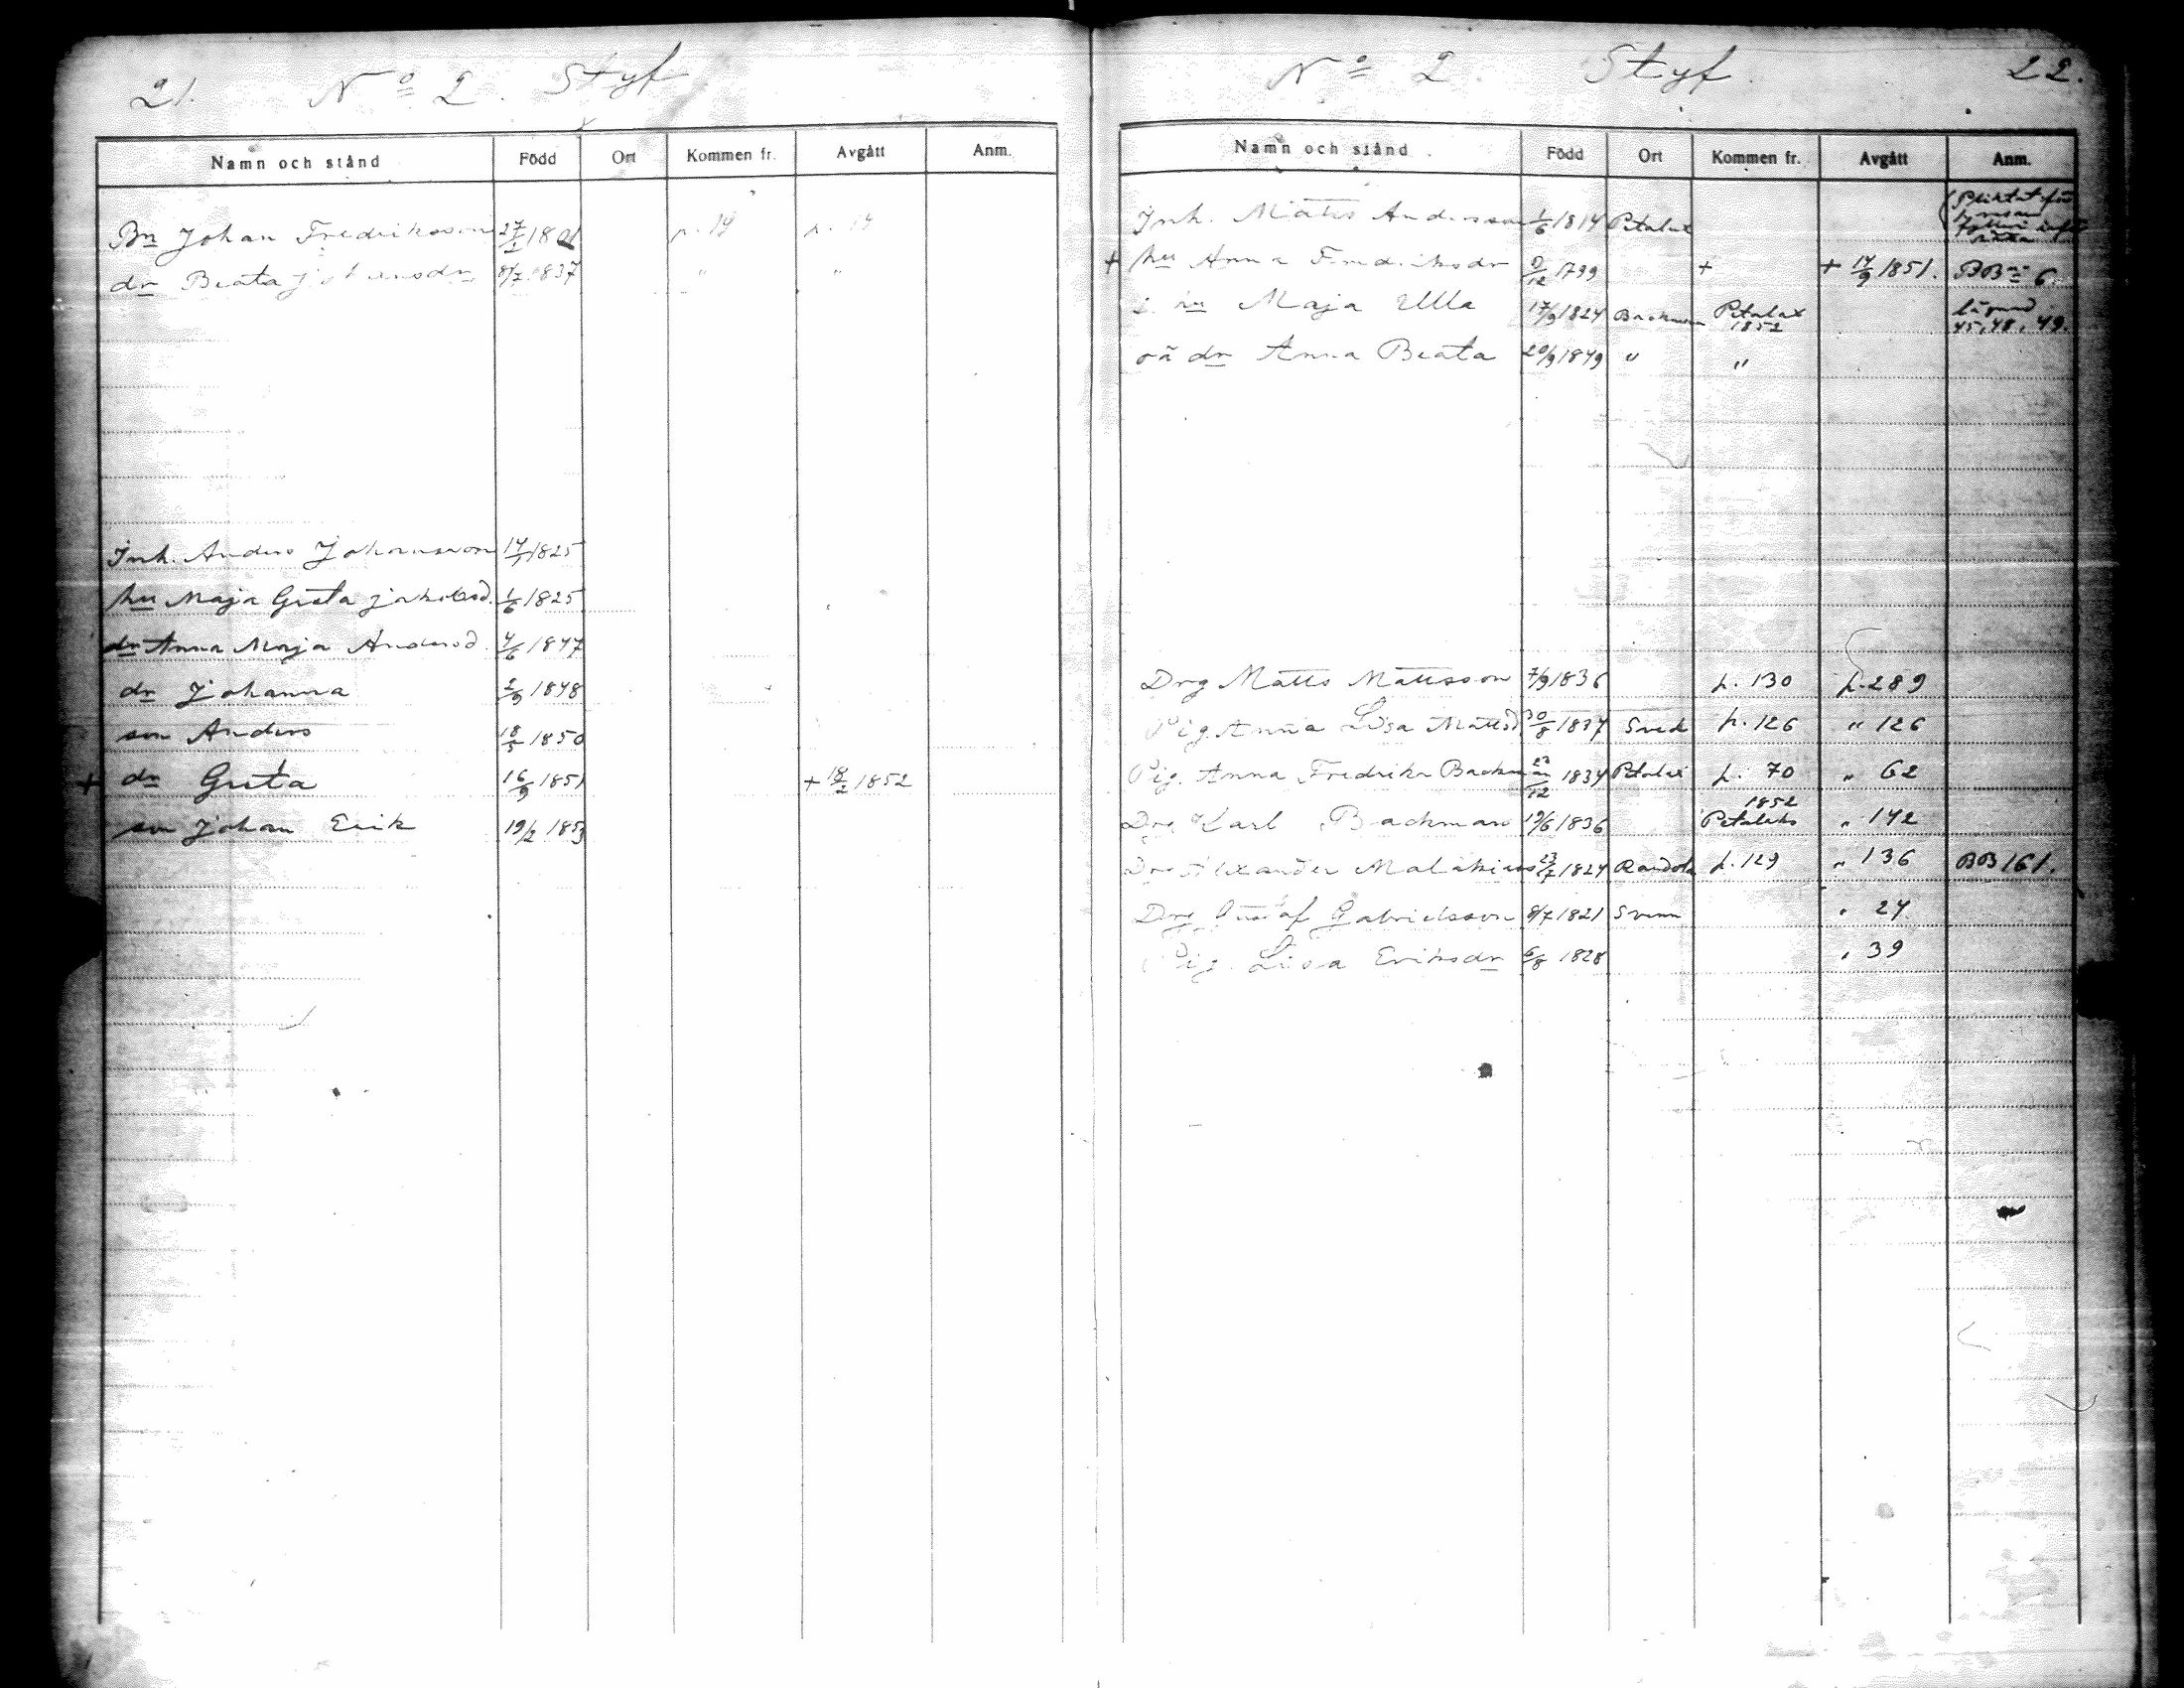 21. No 2. Styf
Namn och stånd Född Ort Kommen fr. Avgått Anm.
Bn Johan Fredriksson 27/1 1801 p. 19 p. 19
dr Beata Johansdr 8/7 1837 " "
Inh. Anders Johansson 1825
hu Maja Greta Jakobsd. 1/6 1825
dr Anna Maja Andersd. 4/6 1847
dr Johanna 2/9 1848
son Anders 18/5 1850
+ dr Greta 16/9 1851 + 18/2 1852
son Johan Erik 19/2 1853
No 2. Styf. 22.
Namn och stånd Född Ort Kommen fr. Avgått Anm.
Inh. Matts Andersson 1/6 1814 Petalax
+ hu Anna Fredriksdr 12 1799 + + 14/9 1851. BB 6.
hu Maja Ulla 17/9 1824 Petalax 1852 45, 48, 49.
oä dr Anna Beata 20/9 1849 " "
Drg Matts Mattsson 7/9 1836 p. 130 p. 289
Pig. Anna Lisa Mattsd 30/8 1837 Sved p. 126 " 126
Pig. Anna Fredrika Backman 23/12 1834 Petalax p. 70 " 62
Drg Karl Backman 19/6 1836 1852 Petalaks " 142
Drg Alexander Malakias 23/2 1824 p. 129 " 136 BB 161.
Drg Gustaf Gabrielsson 8/7 1821 " 24
Pig. Lisa Eriksdr 6/8 1828 " 39